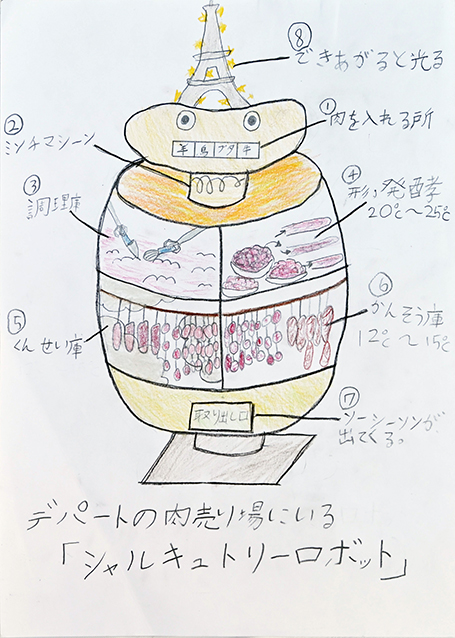 ⑧
できあがると光る
①
肉を入れる所
②
ミンチマシーン
羊 鳥 ブタ 牛
③
調理庫
④
形、発酵
20℃〜25℃
⑤
くんせい庫
⑥
かんそう庫
12℃〜15℃
⑦
取り出し口
ソーシーソンが
出てくる。
デパートの肉売り場にいる
「シャルキュトリーロボット」